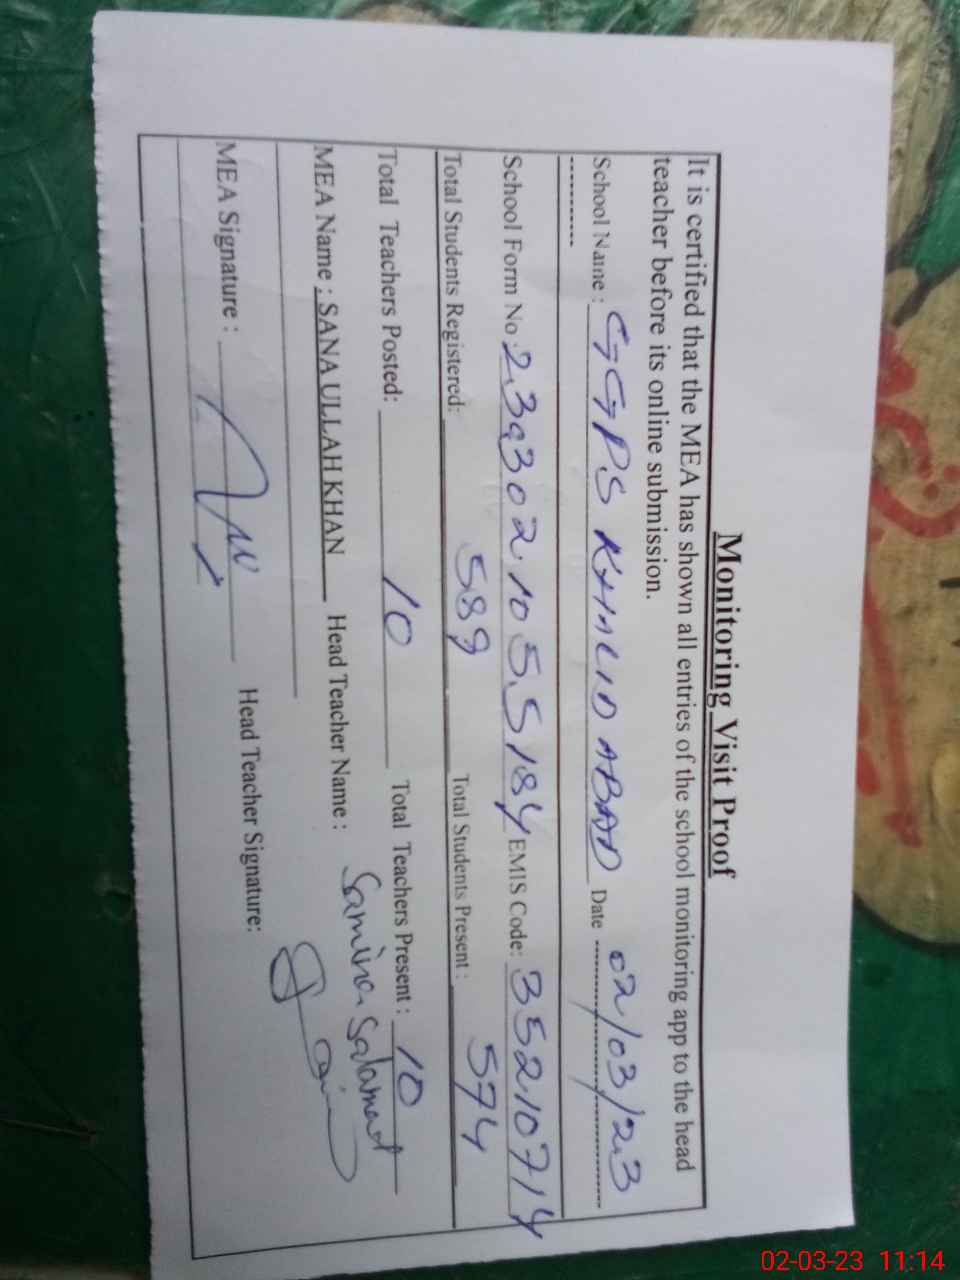 Monitoring Visit Proof
It is certified that the MEA has shown all entries of the school monitoring app to the head
teacher before its online submission.
School Name : GGPS KHALID ABAD Date 02/03/23
School Form No : 2393021055184 EMIS Code: 35210714
Total Students Registered: 589 Total Students Present : 574
Total Teachers Posted: 10 Total Teachers Present : 10
MEA Name : SANA ULLAH KHAN Head Teacher Name : Samina Salamat
MEA Signature : Head Teacher Signature:
02-03-23 11:14